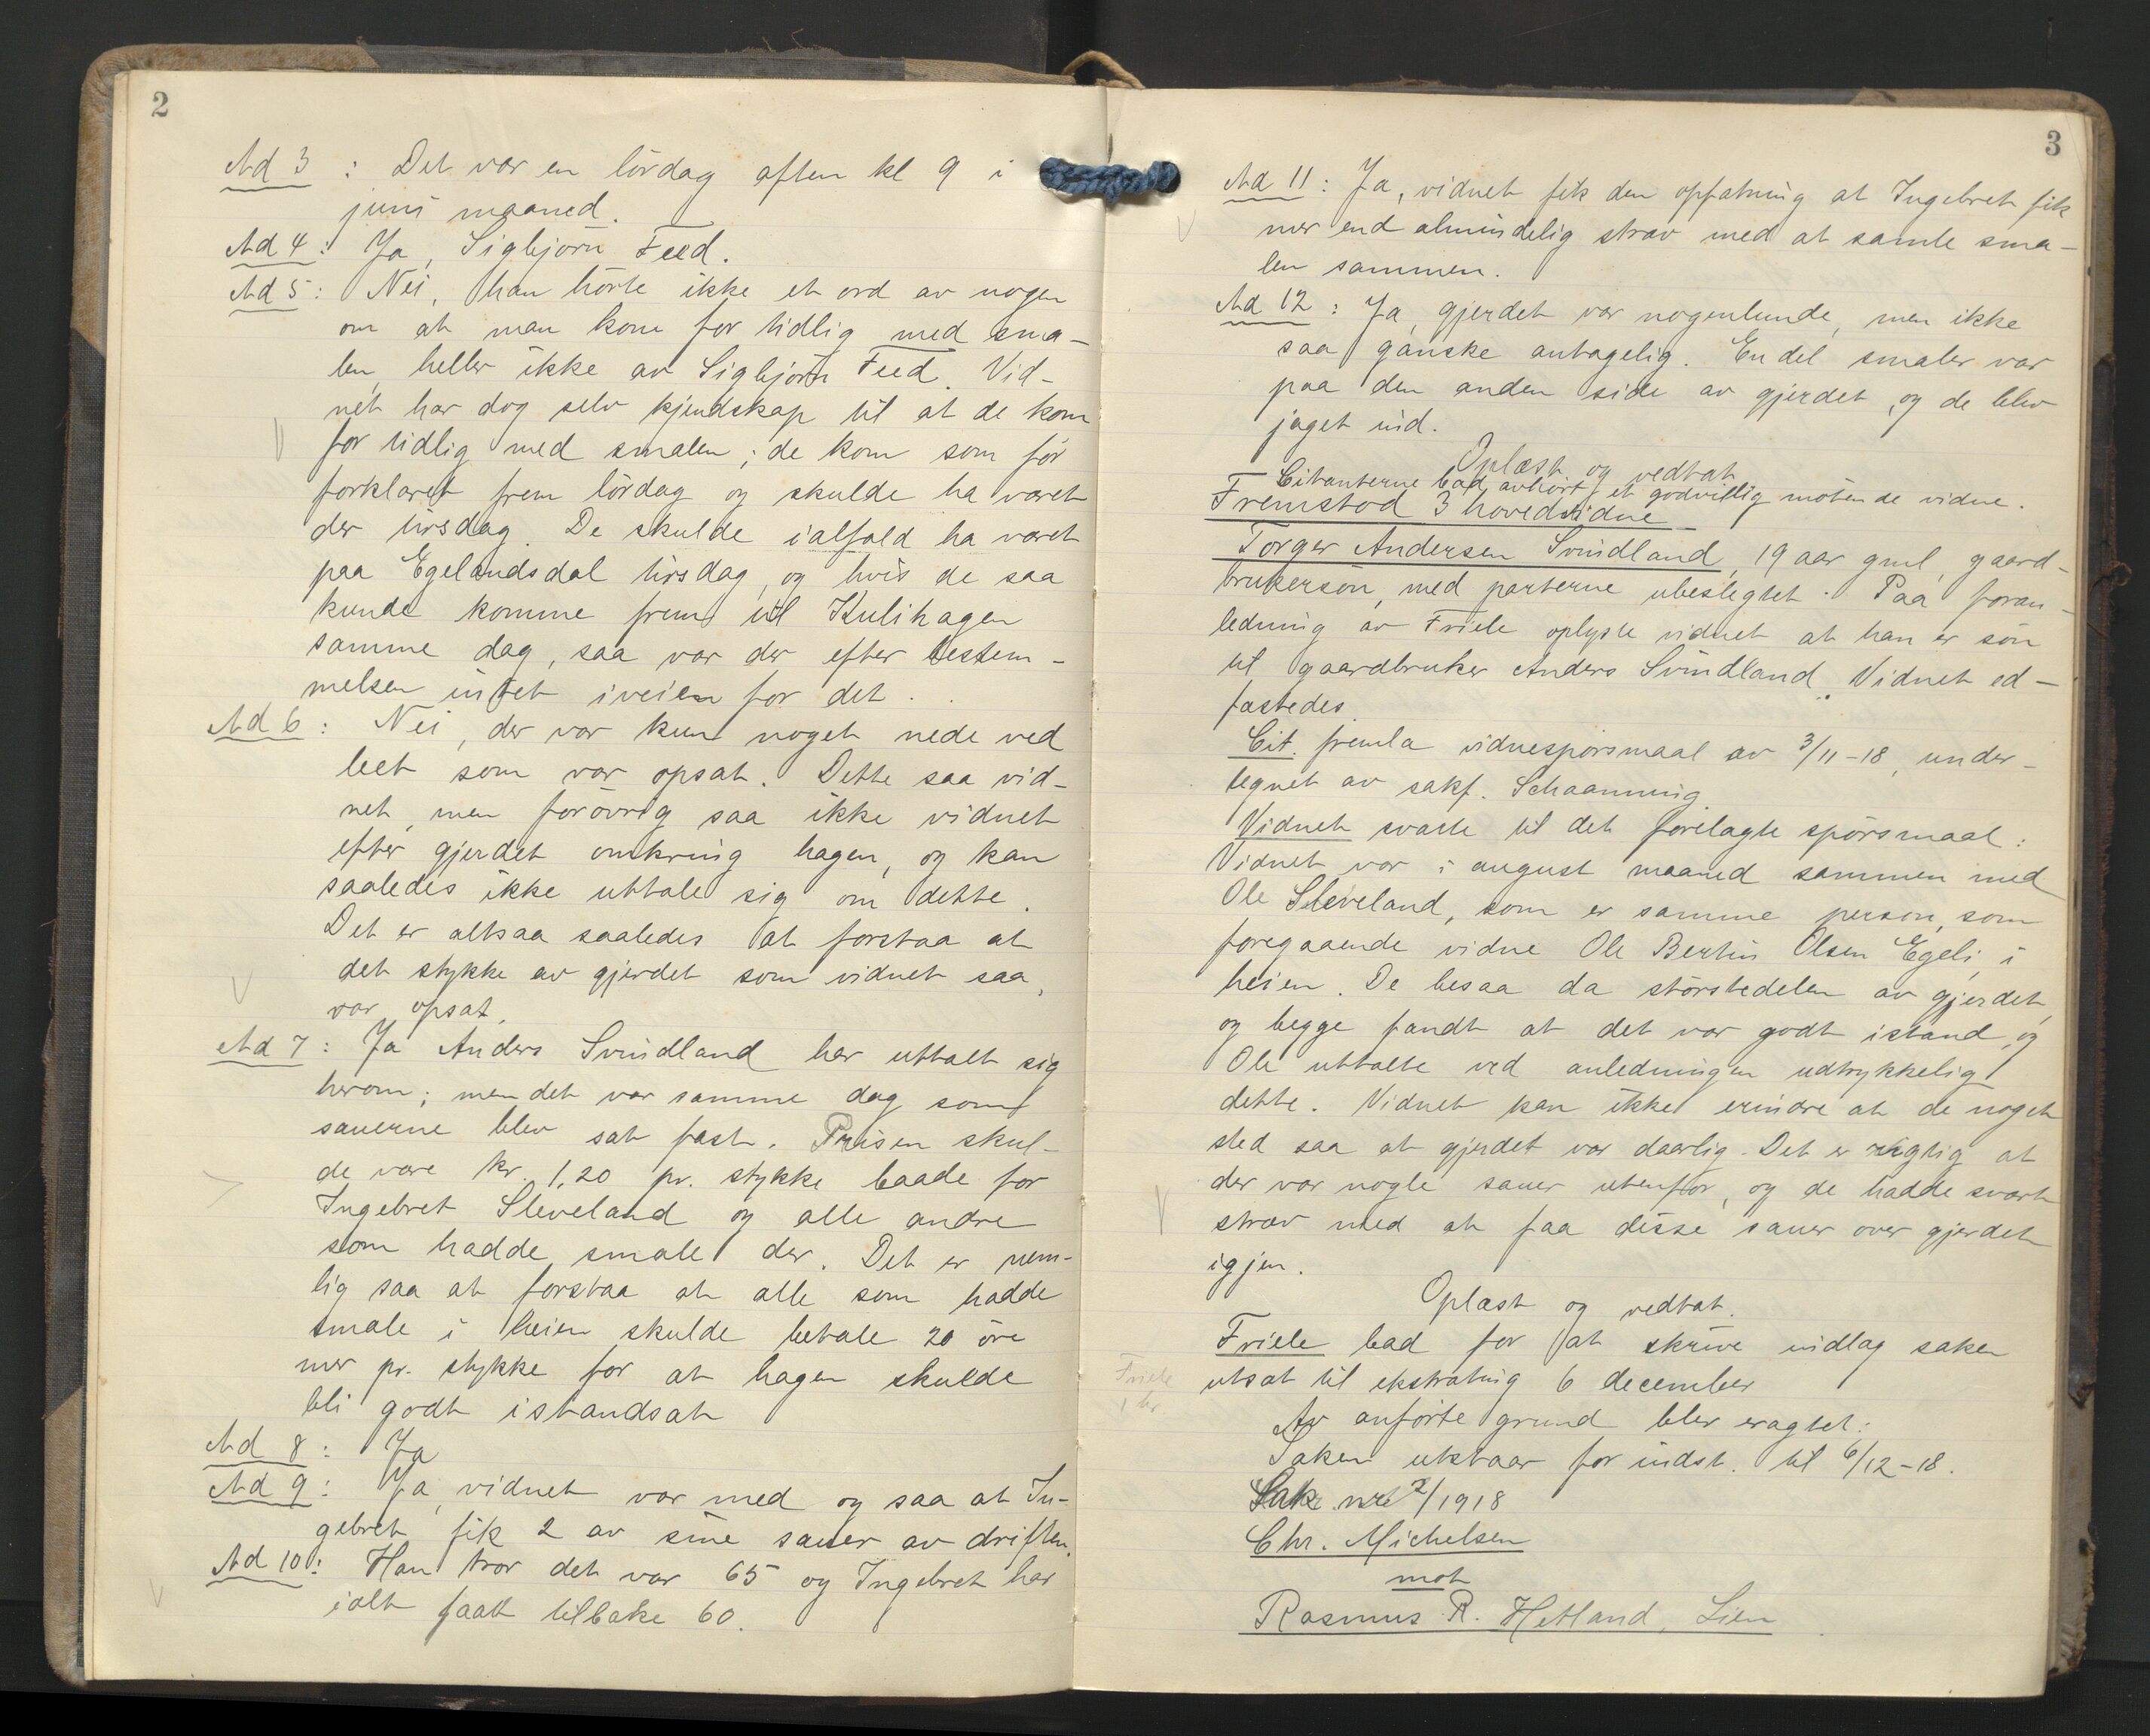 2
Ad 3 : Det var en lördag aften kl 9 i
juni maaned.
Ad 4 : Ja, Sigbjörn Feed.
Ad 5 : Nei, han hörte ikke et ord av nogen
om at man kom for tidlig med sma-
len, heller ikke av Sigbjörn Feed. Vid-
net har dog selv kjendskap til at de kom
for tidlig med smalen; de kom som för
forklaret frem lördag og skulde ha været
der tirsdag. De skulde ialfald ha været
paa Egelandsdal tirsdag, og hvis de saa
kunde komme frem til Kulihagen
samme dag, saa var der efter bestem-
melsen intet iveien for det.
Ad 6 : Nei, der var kun noget nede ved
leet som var opsat. Dette saa vid-
net, men forövrig saa ikke vidnet
efter gjerdet omkring hagen, og kan
saaledes ikke uttale sig om dette.
Det er altsaa saaledes at forstaa at
det stykke av gjerdet som vidnet saa,
var opsat.
Ad 7 : Ja Anders Svindland har uttalt sig
herom; men det var samme dag som
sauerne blev sat fast. Prisen skul-
de være kr. 1,20 pr. stykke baade for
Ingebret Sleveland og alle andre
som hadde smale der. Det er nem-
lig saa at forstaa at alle som hadde
smale i heien skulde betale 20 öre
mer pr. stykke for at hagen skulde
bli godt istandsat
Ad 8 : Ja
Ad 9 : Ja, vidnet var med og saa at In-
gebret fik 2 av sine sauer av driften.
Ad 10 : Han tror det var 65 og Ingebret har
ialt faat tilbake 60.
3
Ad 11 : Ja, vidnet fik den opfatning at Ingebret fik
mer end almindelig stræv med at samle sma-
len sammen.
Ad 12 : Ja, gjerdet var nogenlunde, men ikke
saa ganske antagelig. En del smaler var
paa den anden side av gjerdet, og de blev
jaget ind.
Oplæst og vedtat
Citanterne bad avhört et godvillig mötende vidne.
Fremstod 3 hovedvidne
Torger Andersen Svindland, 19 aar gml, gaard-
brukersön, med parterne ubeslegtet. Paa foran-
ledning av Friele oplyste vidnet at han er sön
til gaardbruker Anders Svindland. Vidnet ed-
fæstedes.
Cit. fremla vidnespörsmaal av 3/11-18, under-
tegnet av sakf. Schaanning.
Vidnet svarte til det forelagte spörsmaal:
Vidnet var i august maaned sammen med
Ole Sleveland, som er samme person, som
foregaaende vidne Ole Bertin Olsen Egeli, i
heien. De besaa da störstedelen av gjerdet,
og begge fandt at det var godt istand, og
Ole uttalte ved anledningen udtrykkelig
dette. Vidnet kan ikke erindre at de noget
sted saa at gjerdet var daarlig. Det er rigtig at
der var nogle sauer utenfor, og de hadde svært
stræv med at faa disse sauer over gjerdet
igjen.
Oplæst og vedtat.
Friele bad for at skrive indlæg saken
utsat til ekstrating 6 december
Friele
1 kr
Av anförte grund blev eragtet:
Saken utstaar for indst. til 6/12-18.
Sak nr 2/1918
Chr. Michelsen
mot
Rasmus R. Hetland, Lien